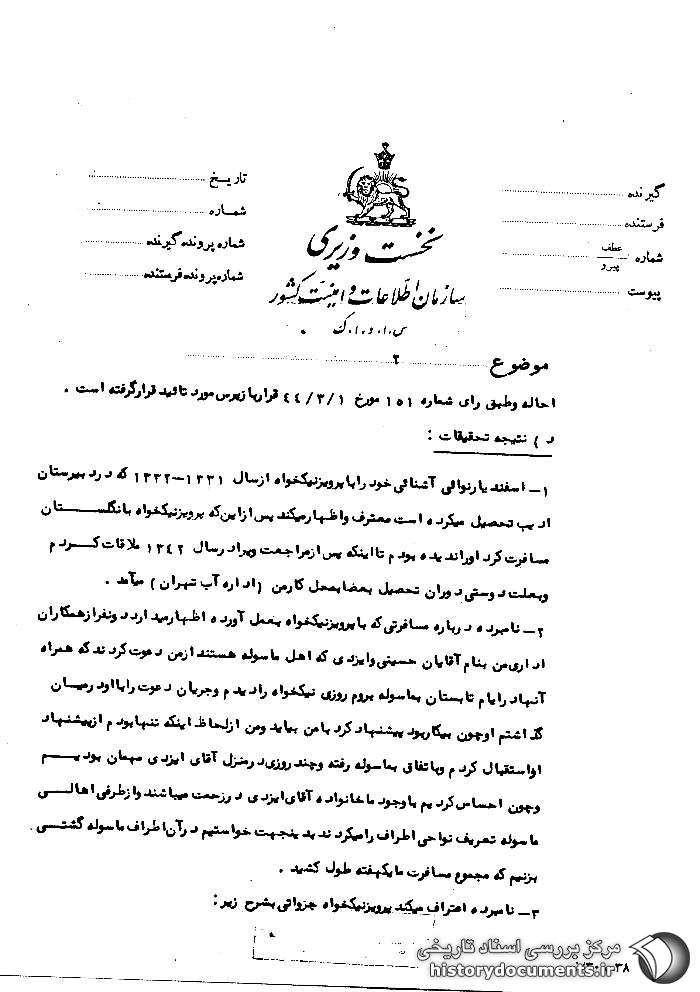 گیرنده
فرستنده
شماره عطف پیرو
پیوست
تاریخ
شماره
شماره پرونده گیرنده
شماره پرونده فرستنده
نخست وزیری
سازمان اطلاعات و امنیت کشور
س.ا.و.ا.ک.
موضوع ۲
احاله وطبق رای شماره ۱۵۱ مورخ ۴۴/۳/۱ قرار بازپرس مورد تائید قرارگرفته است .
د ) نتیجه تحقیقات :
۱- اسفندیار نوائی آشنائی خود را با پرویز نیکخواه از سال ۱۳۳۱-۱۳۳۲ که در دبیرستان
ادیب تحصیل میکرده است معترف و اظهار میکند پس از این که پرویز نیکخواه بانگلستان
مسافرت کرد اورا ندیده بودم تا اینکه پس از مراجعت ویرا در سال ۱۳۴۲ ملاقات کردم
وبعلت دوستی دوران تحصیل بعضا بمحل کارمن ( اداره آب تهران ) میآمد .
۲- نامبرده درباره مسافرتی که با پرویز نیکخواه بعمل آورده اظهار میدارد دونفر از همکاران
اداری من بنام آقایان حسینی وایزدی که اهل ماسوله هستند از من دعوت کردند که همراه
آنها در ایام تابستان بماسوله بروم روزی نیکخواه را دیدم وجریان دعوت را با او در میان
گذاشتم اوچون بیکار بود پیشنهاد کرد با من بیاید ومن از لحاظ اینکه تنها بودم از پیشنهاد
او استقبال کردم وباتفاق بماسوله رفته وچند روزی در منزل آقای ایزدی مهمان بودیم
وچون احساس کردیم با وجود ما خانواده آقای ایزدی در زحمت میباشند واز طرفی اهالی
ماسوله تعریف نواحی اطراف را میکردند بدینجهت خواستیم در آن اطراف ماسوله گشتی
بزنیم که مجموع مسافرت ما یکهفته طول کشید .
۳- نامبرده اعتراف میکند پرویز نیکخواه جزواتی بشرح زیر :
مرکز بررسی اسناد تاریخی
historydocuments.ir
۳۸